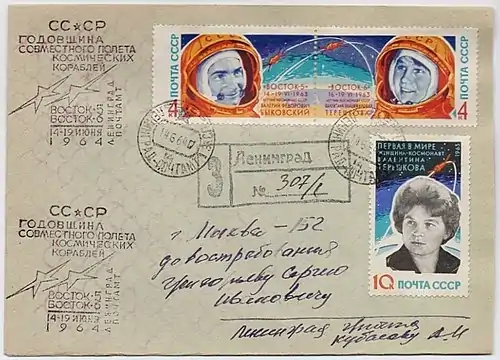 СС★СР
ГОДОВЩИНА
СОВМЕСТНОГО ПОЛЕТА
КОСМИЧЕСКИХ
КОРАБЛЕЙ
ВОСТОК-5
ВОСТОК-6
14-19 ИЮНЯ
1964
ЛЕНИНГРАД
ПОЧТАМТ
ПОЧТА СССР
4
ВОСТОК-5
14-19·VI·1963
ВАЛЕРИЙ ФЕДОРОВИЧ
БЫКОВСКИЙ
ВОСТОК-6
16-19·VI·1963
ПОЧТА СССР
4
З
Ленинград
№ 307/1
ПЕРВАЯ В МИРЕ
ЖЕНЩИНА-КОСМОНАВТ
ВАЛЕНТИНА
ТЕРЕШКОВА
1963
10 ПОЧТА СССР
СС★СР
ГОДОВЩИНА
СОВМЕСТНОГО ПОЛЕТА
КОСМИЧЕСКИХ
КОРАБЛЕЙ
ВОСТОК-5
ВОСТОК-6
14-19 ИЮНЯ
1964
ЛЕНИНГРАД
ПОЧТАМТ
г Москва-152
до востребования
Сергею
Ивановичу
Ленинград